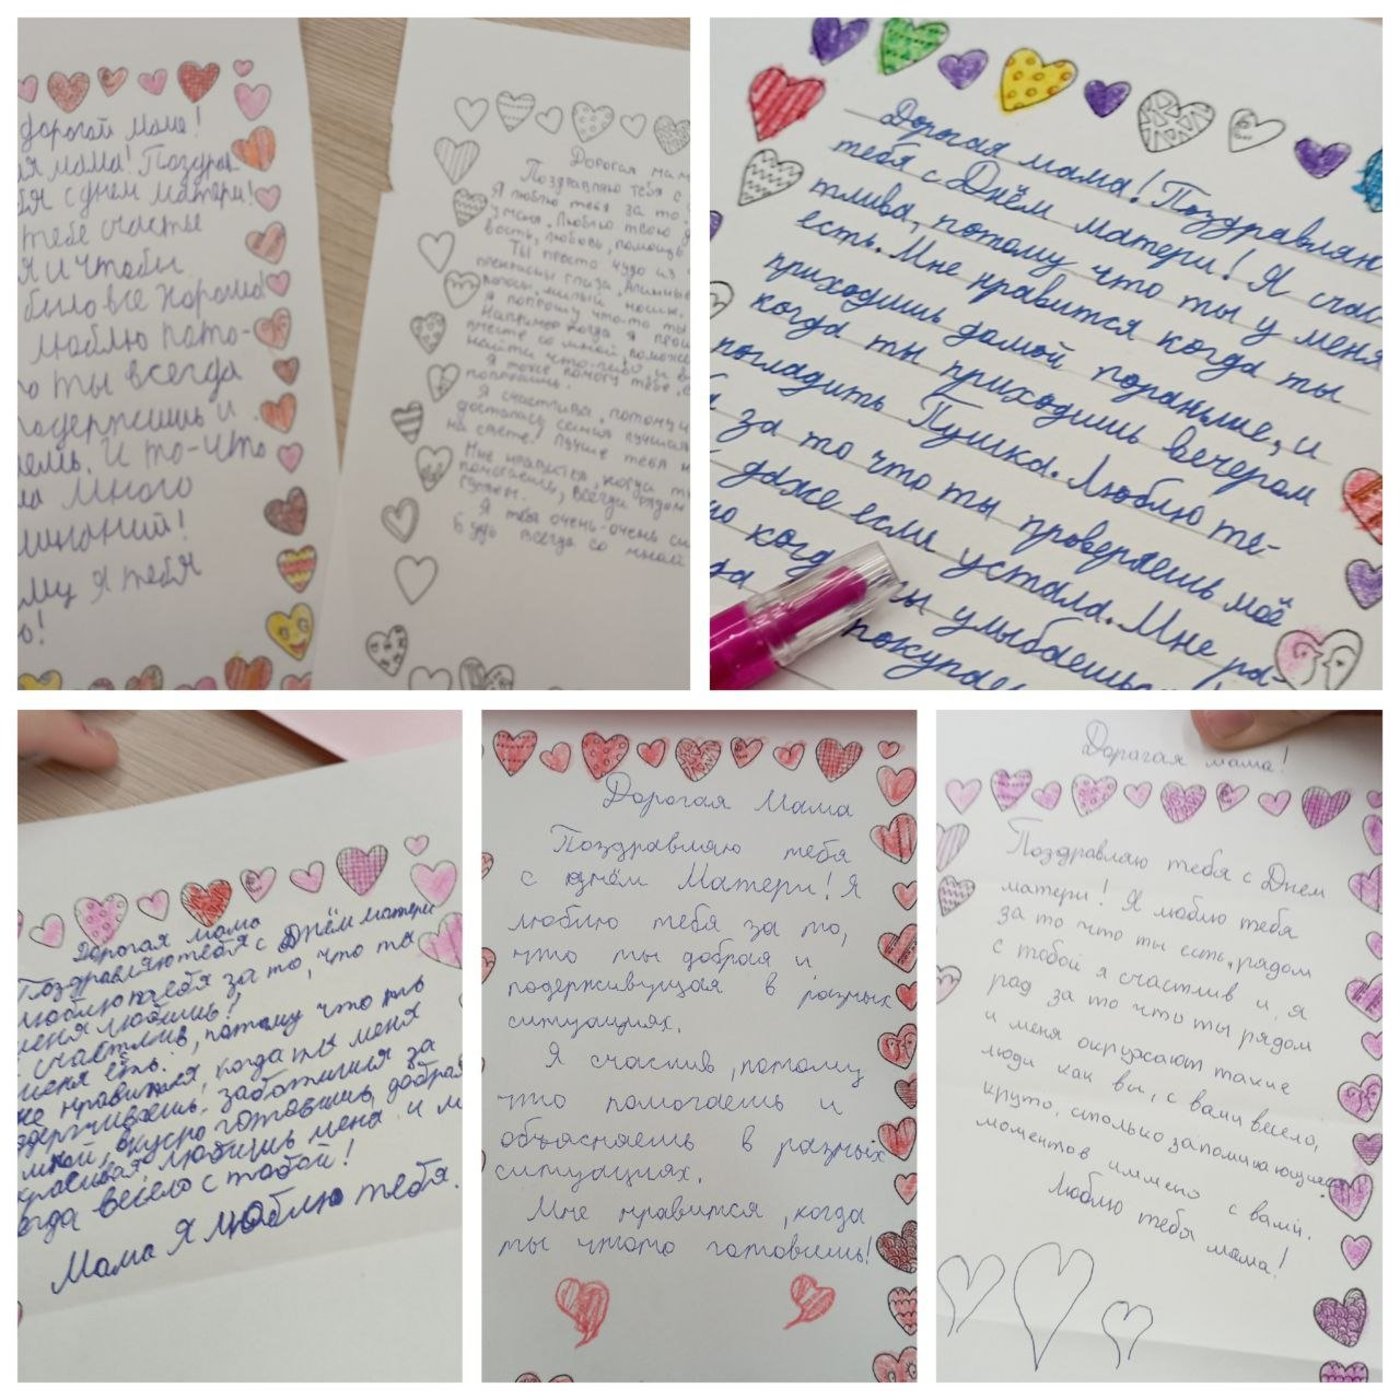 дорогой мама!
ая мама! Поздрав
бя с днем матери!
тебе счастье
я и чтобы
было все хорошо!
люблю пото-
о ты всегда
подержишь и
ешь. И то-что
на много
минаний!
му я тебя
ю!
Дорогая мам
Поздравляю тебя с
Я люблю тебя за то,
у меня. Люблю твою
вость, любовь, помощь
Ты просто чудо из
прекрасны глаза, длинные
волосы, милый носик.
Я попрошу что-то ты
Например когда я прош
вместе со мной, поможе
найти что-либо, и в
Я тоже помогу тебе, е
попросишь.
Я счастлива, потому ч
досталась самая лучшая
на свете! Лучше тебя н
Мне нравится, когда т
помогаешь, всегда рядом
гуляем.
Я тебя очень-очень си
Будь всегда со мной
Дорогая мама! Поздравляю
тебя с Днём матери! Я счас-
тлива, потому что ты у меня
есть. Мне нравится когда ты
приходишь домой пораньше, и
когда ты приходишь вечером
погладить Пушка. Люблю те-
за то что ты проверяешь моё
даже если устала. Мне ра-
но когда ты улыбаешься
покупае
Дорогая мама
Поздравляю тебя с Днём матери
люблю тебя за то, что ты
меня любишь!
счастлив, потому что ты
меня есть.
не нравится, когда ты меня
держиваешь, заботишься за
мной, вкусно готовишь, добрая
красивая, любишь меня и м
огда весело с тобой!
Мама Я люблю тебя.
Дорогая Мама
Поздравляю тебя
с днём Матери! Я
люблю тебя за то,
что ты добрая и
подерживующая в разных
ситуациях.
Я счаслив, потому
что помогаешь и
объясняешь в разных
ситуациях.
Мне нравится, когда
ты чтото готовишь!
Дорагая мама!
Поздравляю тебя с Днем
матери! Я люблю тебя
за то что ты есть, рядом
с тобой я счастлив и, я
рад за то что ты рядом
и меня окружают такие
люди как вы, с вами весело,
круто, столько запоминающихся
моментов имменo с вами.
Люблю тебя мама!